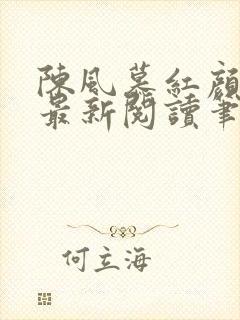 陳風慕紅顏
最新閱讀筆
何立海